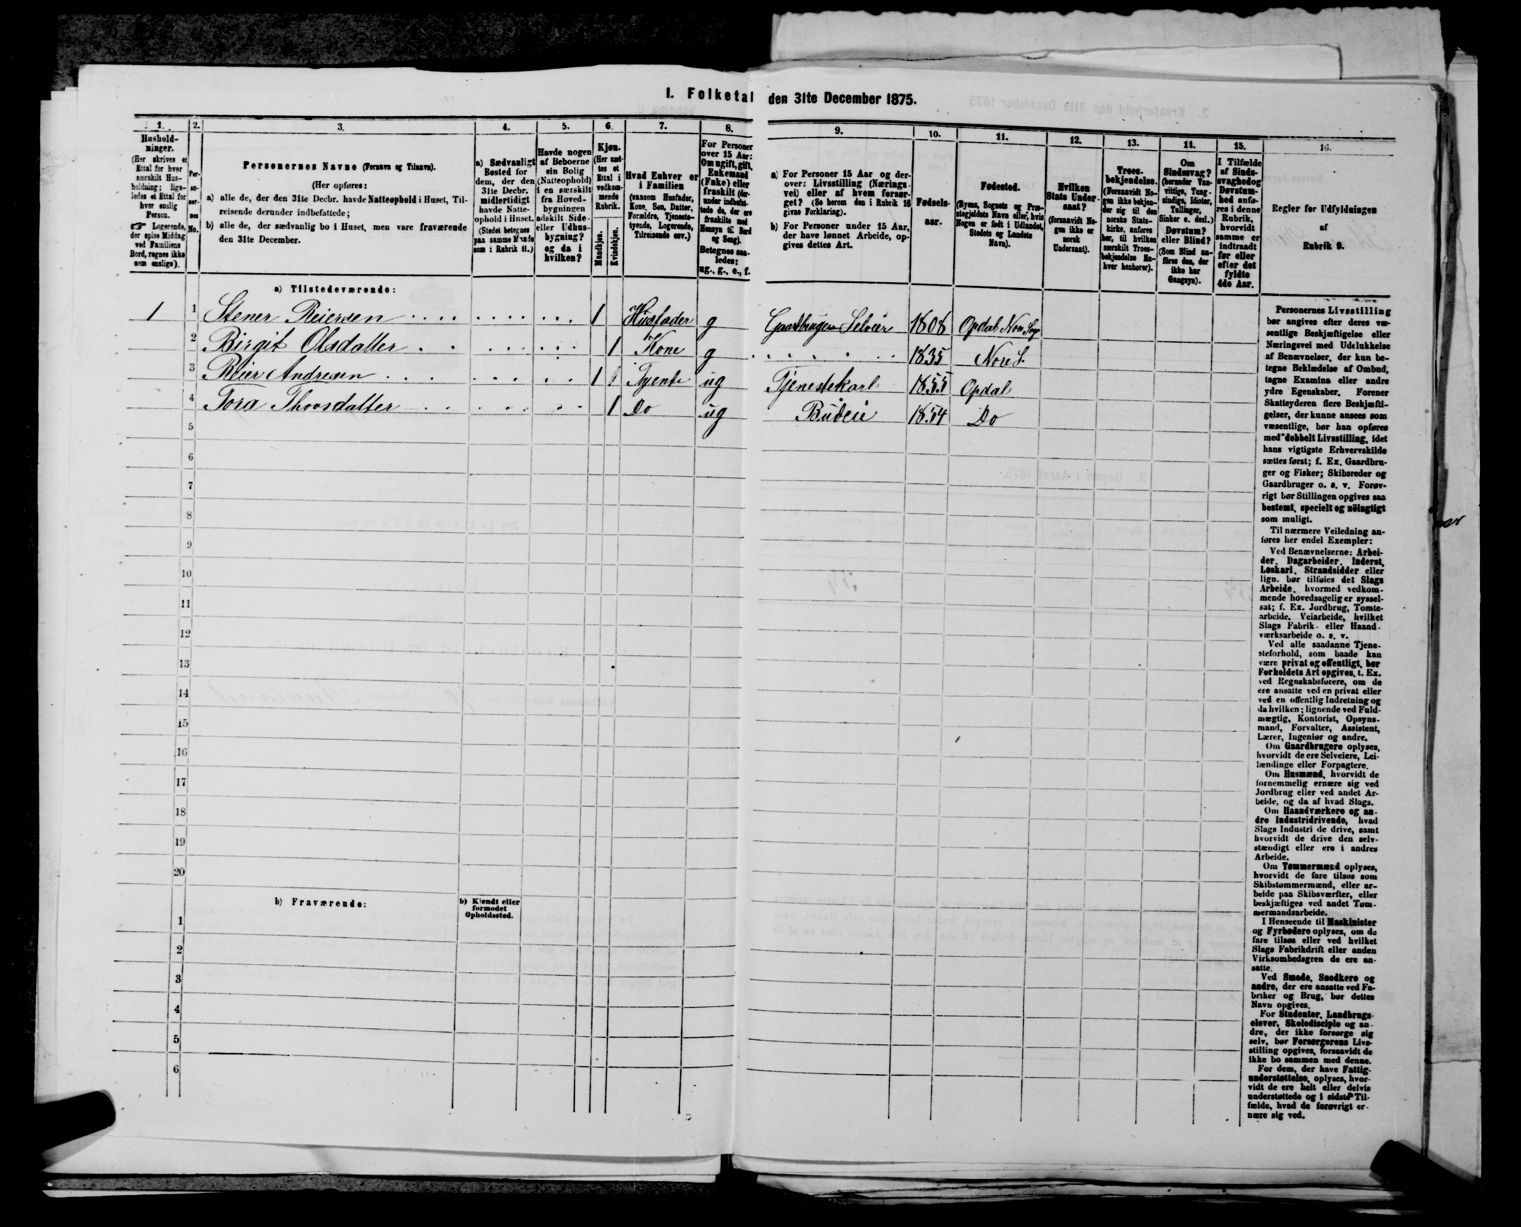 I. Folketal den 31te December 1875.
1. 2. 3. 4. 5. 6. 7. 8. 9. 10. 11. 12. 13. 14. 15. 16.
Husholdninger.
(Her skrives et Ettal for hver særskilt Husholdning; ligeledes et Ettal for hver enslig Person.
☞ Logerende, der spise Middag ved Familiens Bord, regnes ikke som enslige).
Personernes No.
Personernes Navne (Fornavn og Tilnavn).
(Her opføres:
a) alle de, der den 31te Decbr. havde Natteophold i Huset, Tilreisende derunder indbefattede;
b) alle de, der sædvanlig bo i Huset, men vare fraværende den 31te December.
a) Sædvanligt Bosted for dem, der den 31te Decbr. midlertidigt havde Natteophold i Huset.
(Stedet betegnes paa samme Maade som i Rubrik 11.)
Havde nogen af Beboerne sin Bolig (Natteophold) i en særskilt fra Hovedbygningen adskilt Side- eller Udhusbygning? og da i hvilken?
Kjøn.
(Her sættes et Ettal i vedkommende Rubrik.
Mandkjøn. Kvindekjøn.
Hvad Enhver er i Familien
(saasom Husfader, Kone, Søn, Datter, Forældre, Tjenestetyende, Logerende, Tilreisende osv.)
For Personer over 15 Aar: Om ugift, gift, Enkemand (Enke) eller fraskilt (derunder indbefattede de, der ere fraskilte med Hensyn til Bord og Seng).
Betegnes saaledes: ug., g., e., f.
a) For Personer 15 Aar og derover: Livsstilling (Næringsvei) eller af hvem forsørget? (Se herom den i Rubrik 16 givne Forklaring).
b) For Personer under 15 Aar, der have lønnet Arbeide, opgives dettes Art.
Fødselsaar.
Fødested.
(Byens, Sognets og Præstegjeldets Navn eller, hvis Nogen er født i Udlandet, Stedets og Landets Navn).
Hvilken Stats Undersaat?
(forsaavidt Nogen ikke er norsk Undersaat).
Troesbekjendelse.
(Forsaavidt Nogen ikke bekjender sig til den norske Statskirke, anføres her, til hvilken særskilt Troesbekjendelse Enhver henhører).
Om Sindssvag? (herunder Vanvittige, Tungsindige, Idioter, Tullinger, Sinker o. desl.). Døvstum? eller Blind? (Som Blind anføres den, der ikke har Gangsyn).
I Tilfælde af Sindssvaghed og Døvstumhed anføres i denne Rubrik, hvorvidt samme er indtraadt før eller efter det fyldte 4de Aar.
Regler for Udfyldningen
af
Rubrik 9.
a) Tilstedeværende:
1 1 Stener Reiersen 1 Husfader g Gaardbruger Selveier 1808 Opdal Nore Sogn
2 Birgit Olsdatter 1 Kone g 1835 Nore S.
3 Reier Andresen 1 Tyende ug Tjenestekarl 1855 Opdal
4 Tora Thorsdatter 1 Do ug Budeie 1854 Do
5
6
7
8
9
10
11
12
13
14
15
16
17
18
19
20
b) Fraværende:
b) Kjendt eller formodet Opholdssted.
1
2
3
4
5
6
Personernes Livsstilling
bør angives efter deres væ-
sentlige Beskjæftigelse eller
Næringsvei med Udelukkelse
af Benævnelser, der kun be-
tegne Beklædelse af Ombud,
tagne Examina eller andre
ydre Egenskaber. Forener
Skatteyderen flere Beskjæfti-
gelser, der kunne ansees som
væsentlige, bør han opføres
med dobbelt Livsstilling, idet
hans vigtigste Erhvervskilde
sættes først; f. Ex. Gaardbru-
ger og Fisker; Skibsreder og
Gaardbruger o. s. v. Forøv-
rigt bør Stillingen opgives saa
bestemt, specielt og nöiagtigt
som muligt.
Til nærmere Veiledning an-
føres her endel Exempler:
Ved Benævnelserne: Arbei-
der, Dagarbeider, Inderst,
Løskarl, Strandsidder eller
lign. bør tilføies det Slags
Arbeide, hvormed vedkom-
mende hovedsagelig er syssel-
sat; f. Ex. Jordbrug, Tomte-
arbeide, Veiarbeide, hvilket
Slags Fabrik- eller Haand-
værksarbeide o. s. v.
Ved alle saadanne Tjene-
steforhold, som baade kan
være privat og offentligt, bør
Forholdets Art opgives, t. Ex.
ved Regnskabsførere, om de
ere ansatte ved en privat eller
ved en offentlig Indretning og
da hvilken; lignende ved Fuld-
mægtig, Kontorist, Opsyns-
mand, Forvalter, Assistent,
Lærer, Ingeniør og andre.
Om Gaardbrugere oplyses,
hvorvidt de ere Selveiere, Lei-
lændinge eller Forpagtere.
Om Husmænd, hvorvidt de
fornemmelig ernære sig ved
Jordbrug eller ved andet Ar-
beide, og da af hvad Slags.
Om Haandværkere og an-
dre Industridrivende, hvad
Slags Industri de drive, samt
hvorvidt de drive den selv-
stændigt eller ere i andres
Arbeide.
Om Tømmermænd oplyses,
hvorvidt de fare tilsøs som
Skibstømmermænd, eller ar-
beide paa Skibsværfter, eller
beskjæftiges ved andet Tøm-
mermandsarbeide.
I Henseende til Maskinister
og Fyrbødere oplyses, om de
fare tilsøs eller ved hvilket
Slags Fabrikdrift eller anden
Virksomhedsgren de ere an-
satte.
Ved Smede, Snedkere og
andre, der ere ansatte ved Fa-
briker og Brug, bør dettes
Navn opgives.
For Studenter, Landbrugs-
elever, Skoledisciple og an-
dre, der ikke forsørge sig
selv, bør Forsørgerens Livs-
stilling opgives, forsaavidt de
ikke bo sammen med denne.
For dem, der have Fattig-
understøttelse, oplyses, hvor-
vidt de ere helt eller delvis
understøttede og i sidste Til-
fælde, hvad de forøvrigt er-
nære sig ved.